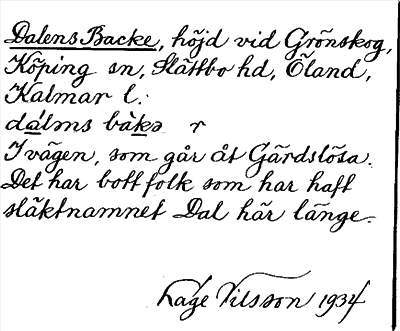 Dalens Backe, höjd vid Grönskog,
Köping sn, Slättbo hd, Öland,
Kalmar l.
dálms bakə r
I vägen, som går åt Gärdslösa.
Det har bott folk som har haft
släktnamnet Dal här länge.
Låge Nilsson 1934